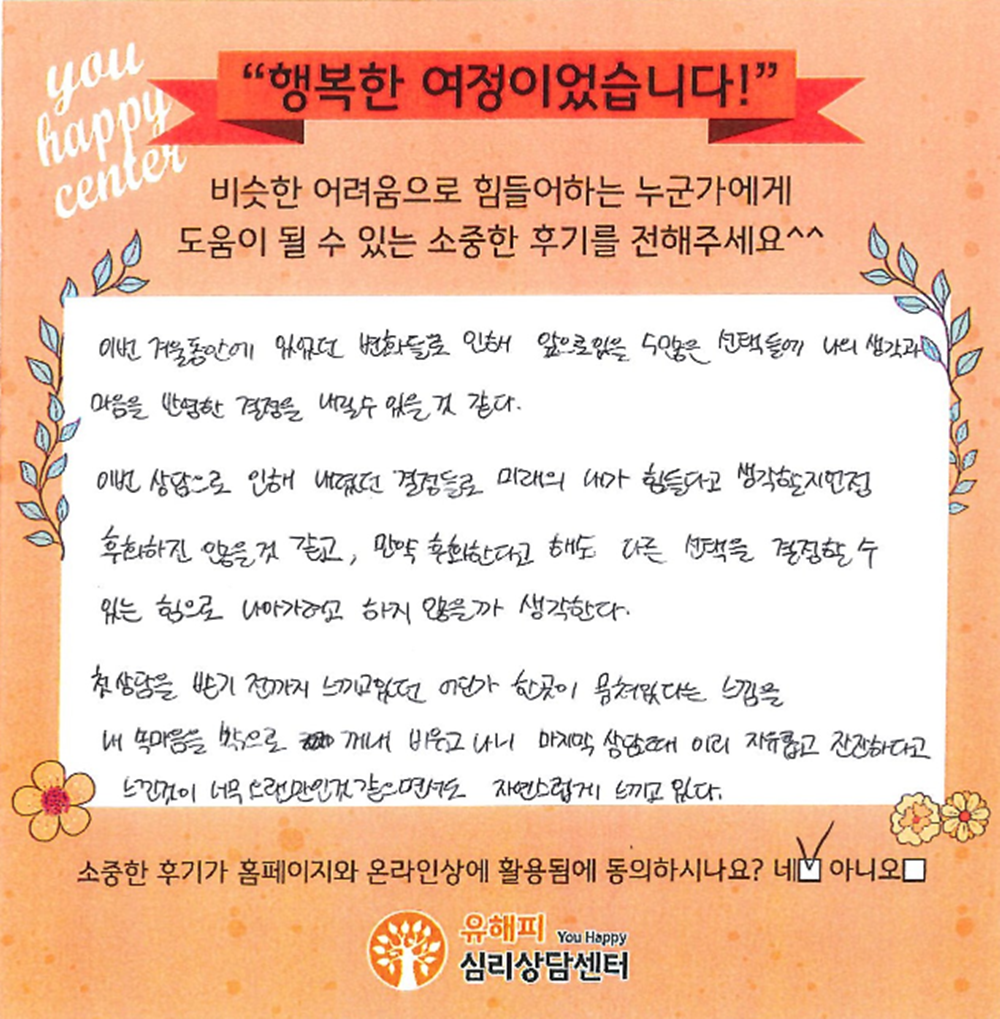 you
happy
center
“행복한 여정이었습니다!”
비슷한 어려움으로 힘들어하는 누군가에게
도움이 될 수 있는 소중한 후기를 전해주세요^^
이번 겨울동안에 있었던 변화들로 인해 앞으로있을 수많은 선택들에 나의 생각과
마음을 반영한 결정을 내릴수 있을것 같다.
이번 상담으로 인해 내렸던 결정들로 미래의 내가 힘들다고 생각할지언정
후회하진 않을것 같고, 만약 후회한다고 해도 다른 선택을 결정할 수
있는 힘으로 나아가려고 하지 않을까 생각한다.
첫상담을 받기 전까지 느끼고있던 어딘가 한곳이 뭉쳐있다는 느낌을
내 속마음을 밖으로 꺼내 비우고 나니 마지막 상담때 이리 자유롭고 잔잔하다고
느낀것이 너무 오랜만인것 같으면서도 자연스럽게 느끼고 있다.
소중한 후기가 홈페이지와 온라인상에 활용됨에 동의하시나요? 네 아니오
유해피 You Happy
심리상담센터